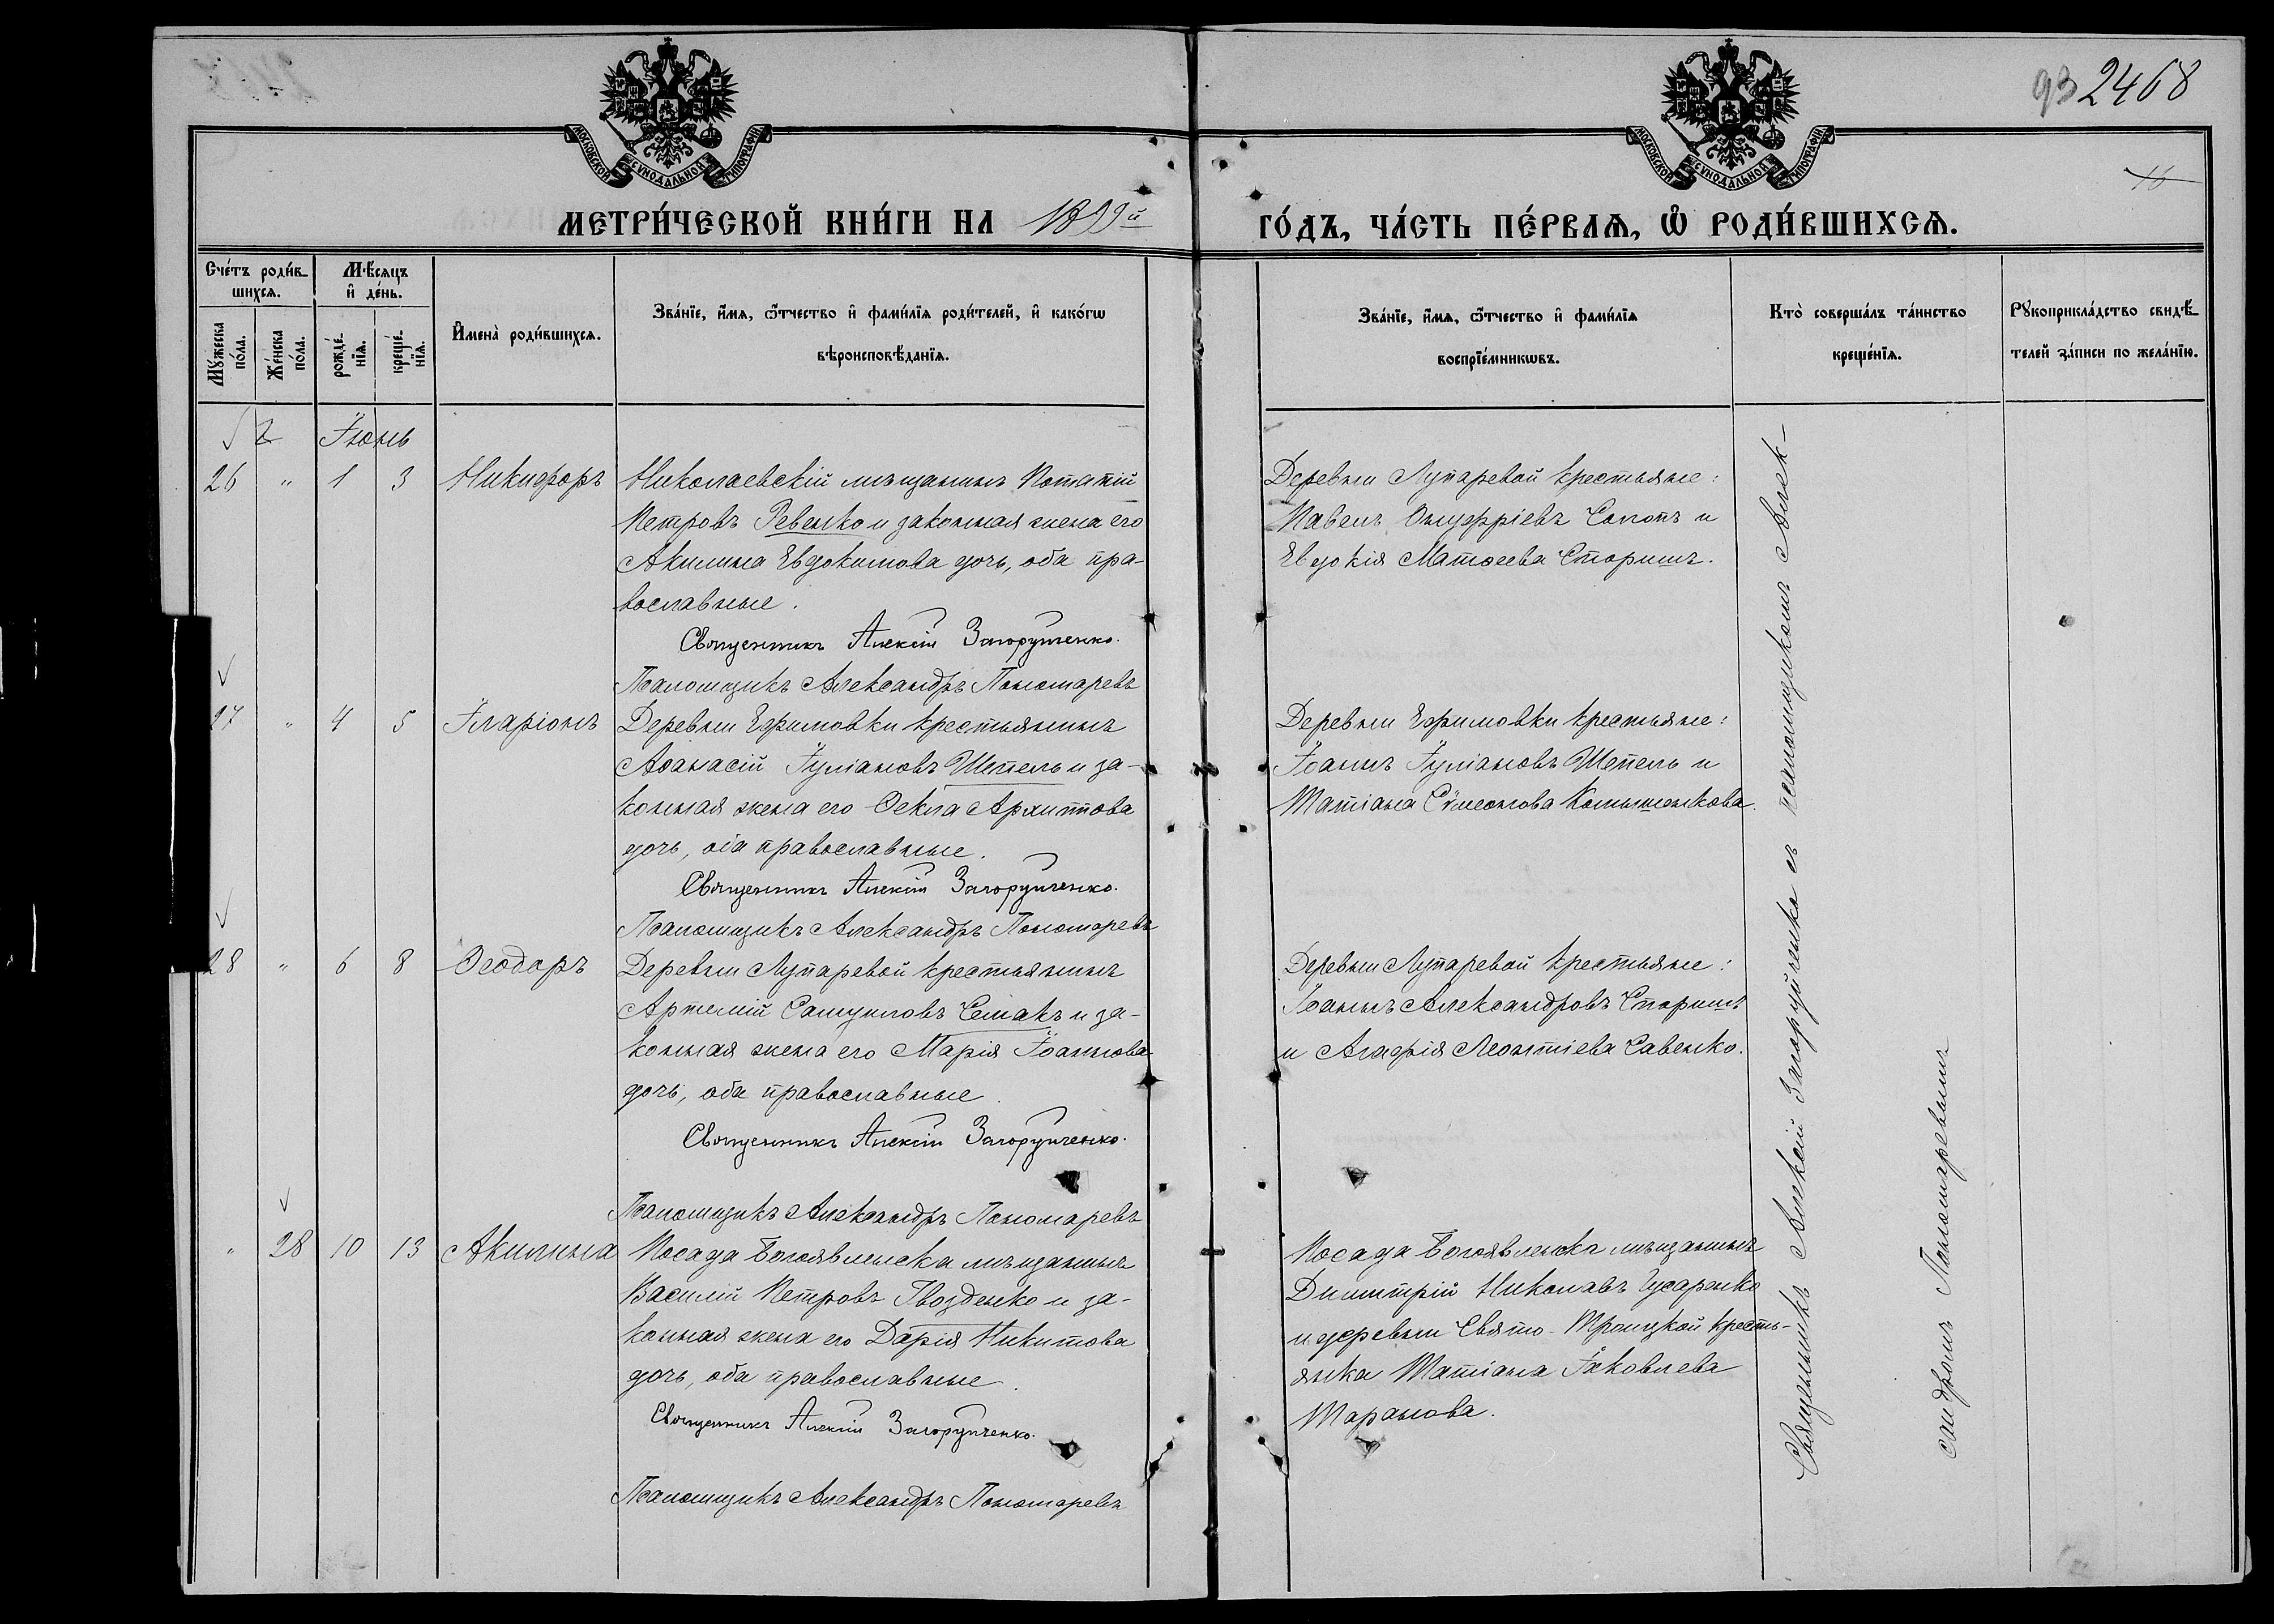 93 2468
16
МОСКОВСКОЙ СѴНОДАЛЬНОЙ ТИПОГРАФІИ
МОСКОВСКОЙ СѴНОДАЛЬНОЙ ТИПОГРАФІИ
МЕТРИ́ЧЕСКОЙ КНИ́ГИ НА 1899й ГО́ДЪ, ЧА́СТЬ ПЕ́РВАѦ, Ѿ РОДИ́ВШИХСѦ.
Сче́тъ роди́в-
шихсѧ.
Мѣ́сѧцъ
и҆ де́нь.
Мꙋ́жеска
по́ла.
Же́нска
по́ла.
рожде́-
нїѧ.
креще́-
нїѧ.
И҆мена̀ роди́вшихсѧ.
Зва́нїе, и҆́мѧ, ѻ҆́тчество и҆ фами́лїѧ роди́телей, и҆ како́гѡ
вѣроисповѣ́данїѧ.
Зва́нїе, и҆́мѧ, ѻ҆́тчество и҆ фами́лїѧ
воспрїе́мникѡвъ.
Кто̀ соверша́лъ та́инство
креще́нїѧ.
Рꙋкоприкла́дство свидѣ́-
телей за́писи по жела́нїю.
Іюнь
26 " 1 3 Никифоръ Николаевскій мѣщанинъ Потапій
Петровъ Ревенко и законная жена его
Акилина Евдокимова дочь, оба пра-
вославные.
Священникъ Алексій Загоруйченко.
Псаломщикъ Александръ Пономаревъ
Деревни Лупаревой крестьяне:
Павелъ Онуфріевъ Сопотъ и
Евдокія Матѳеева Сторишъ.
27 " 4 5 Иларіонъ Деревни Ефимовки крестьянинъ
Аѳанасій Іуліановъ Шепель и за-
конная жена его Ѳекла Архиппова
дочь, оба православные.
Священникъ Алексій Загоруйченко.
Псаломщикъ Александръ Пономаревъ
Деревни Ефимовки крестьяне:
Іоаннъ Іуліановъ Шепель и
Татіана Сѵмеонова Камышенкова.
28 " 6 8 Ѳеодоръ Деревни Лупаревой крестьянинъ
Артемій Самуиловъ Семакъ и за-
конная жена его Марія Іоаннова
дочь, оба православные.
Священникъ Алексій Загоруйченко.
Псаломщикъ Александръ Пономаревъ
Деревни Лупаревой крестьяне:
Іоаннъ Александровъ Сторишъ
и Агафія Леонтіева Савенко.
" 28 10 13 Акилина Посада Богоявленска мѣщанинъ
Василій Петровъ Гвозденко и за-
конная жена его Дарія Никитова
дочь, оба православные.
Священникъ Алексій Загоруйченко.
Псаломщикъ Александръ Пономаревъ
Посада Богоявленска мѣщанинъ
Димитрій Николаевъ Гусаренко
и деревни Свято-Троицкой кресть-
янка Татіана Іаковлева
Таранова.
Священникъ Алексій Загоруйченко съ псаломщикомъ Алек-
сандромъ Пономаревымъ